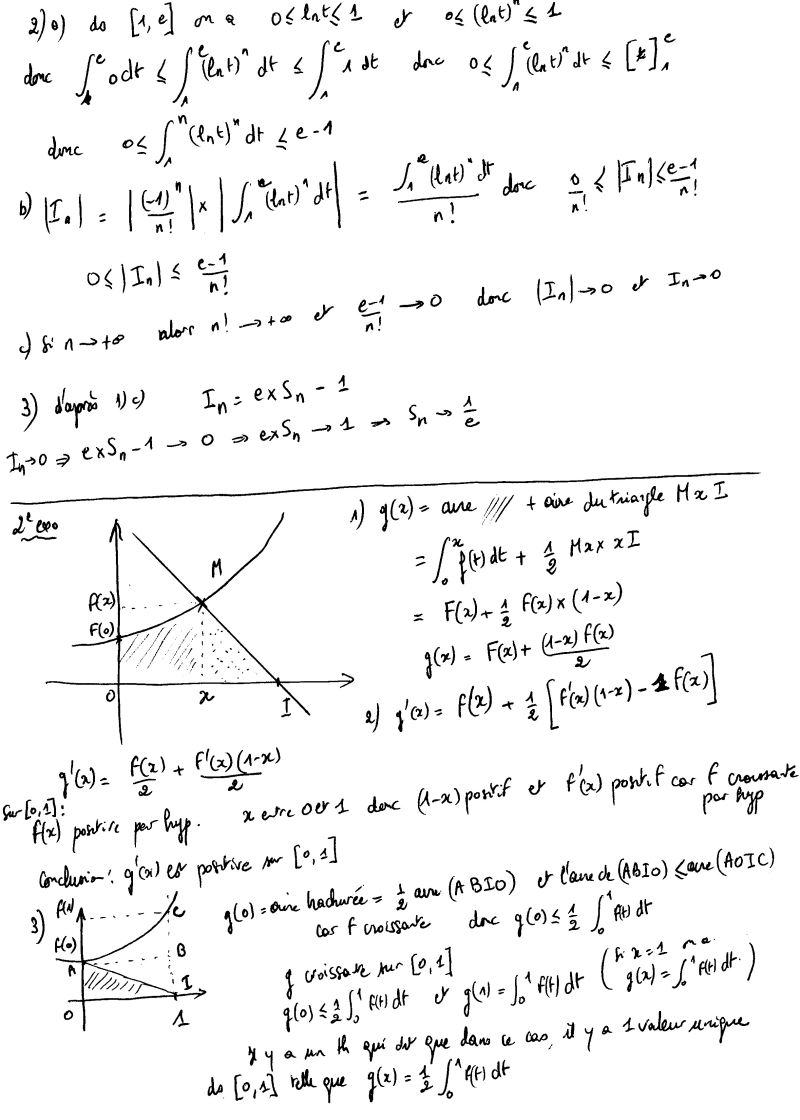 2) a) ds [1, e] on a 0 ≤ ln t ≤ 1 et 0 ≤ (ln t)^n ≤ 1
donc ∫_1^e 0 dt ≤ ∫_1^e (ln t)^n dt ≤ ∫_1^e 1 dt donc 0 ≤ ∫_1^e (ln t)^n dt ≤ [t]_1^e
donc 0 ≤ ∫_1^n (ln t)^n dt ≤ e - 1
b) |I_n| = |(-1)^n / n!| × |∫_1^e (ln t)^n dt| = ∫_1^e (ln t)^n dt / n! donc 0/n! ≤ |I_n| ≤ e-1 / n!
0 ≤ |I_n| ≤ e-1 / n!
c) Si n → +∞ alors n! → +∞ et e-1 / n! → 0 donc |I_n| → 0 et I_n → 0
3) d'après 1) c) I_n = e × S_n - 1
I_n → 0 ⇒ e × S_n - 1 → 0 ⇒ e × S_n → 1 ⇒ S_n → 1/e
2e exo
M
f(x)
f(0)
0 x I
1) g(x) = aire //// + aire du triangle M x I
= ∫_0^x f(t) dt + 1/2 Mx × xI
= F(x) + 1/2 f(x) × (1-x)
g(x) = F(x) + (1-x) f(x) / 2
2) g'(x) = f(x) + 1/2 [f'(x)(1-x) - 1 f(x)]
g'(x) = f(x)/2 + f'(x)(1-x)/2
Sur [0,1] :
f(x) positive par hyp. x entre 0 et 1 donc (1-x) positif et f'(x) positif car f croissante
par hyp
Conclusion : g'(x) est positive sur [0,1]
3) f(1)
f(0)
A B C
I
0 1
g(0) = aire hachurée = 1/2 aire (ABIO) et l'aire de (ABIO) ≤ aire (AOIC)
car f croissante donc g(0) ≤ 1/2 ∫_0^1 f(t) dt
g croissante sur [0,1]
g(0) ≤ 1/2 ∫_0^1 f(t) dt et g(1) = ∫_0^1 f(t) dt (si x=1 on a g(x) = ∫_0^1 f(t) dt.)
Il y a un th qui dit que dans ce cas, il y a 1 valeur unique
ds [0,1] telle que g(x) = 1/2 ∫_0^1 f(t) dt